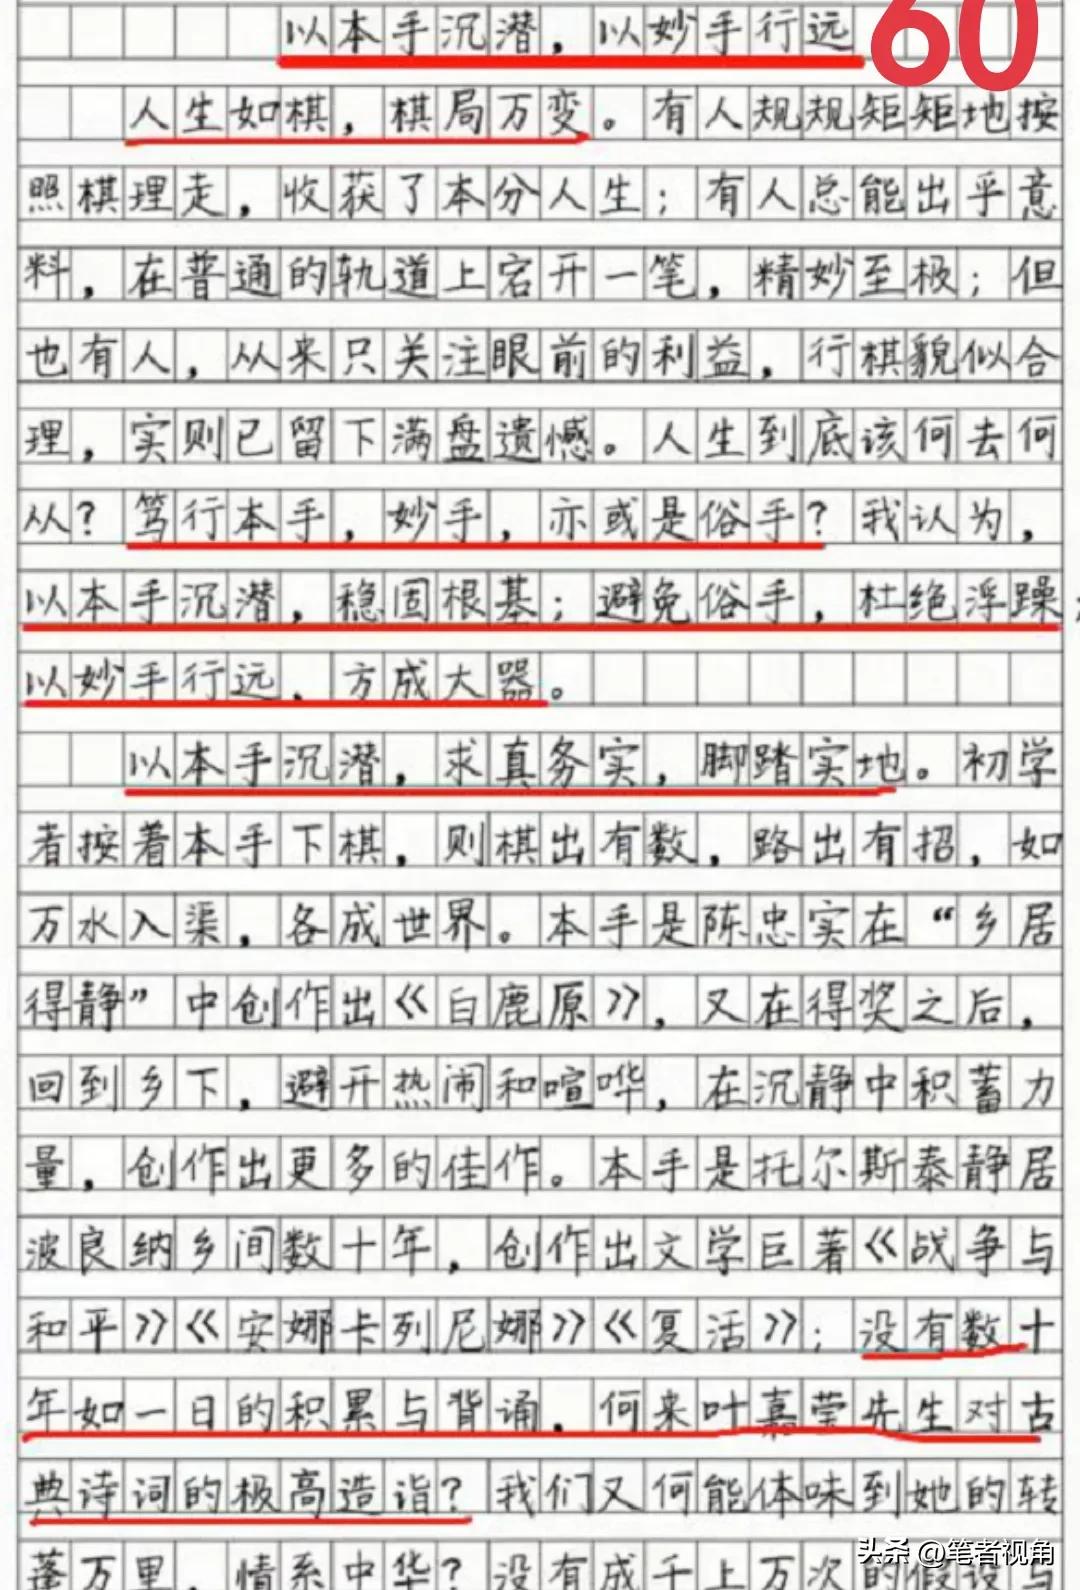 以本手沉潜，以妙手行远
60
人生如棋，棋局万变。有人规规矩矩地按
照棋理走，收获了本分人生；有人总能出乎意
料，在普通的轨道上宕开一笔，精妙至极；但
也有人，从来只关注眼前的利益，行棋貌似合
理，实则已留下满盘遗憾。人生到底该何去何
从？笃行本手，妙手，亦或是俗手？我认为，
以本手沉潜，稳固根基；避免俗手，杜绝浮躁；
以妙手行远，方成大器。
以本手沉潜，求真务实，脚踏实地。初学
者按着本手下棋，则棋出有数，路出有招，如
万水入渠，各成世界。本手是陈忠实在“乡居
得静”中创作出《白鹿原》，又在得奖之后，
回到乡下，避开热闹和喧哗，在沉静中积蓄力
量，创作出更多的佳作。本手是托尔斯泰静居
波良纳乡间数十年，创作出文学巨著《战争与
和平》《安娜卡列尼娜》《复活》；没有数十
年如一日的积累与背诵，何来叶嘉莹先生对古
典诗词的极高造诣？我们又何能体味到她的转
蓬万里，情系中华？没有成千上万次的假设与
头条 @笔者视角